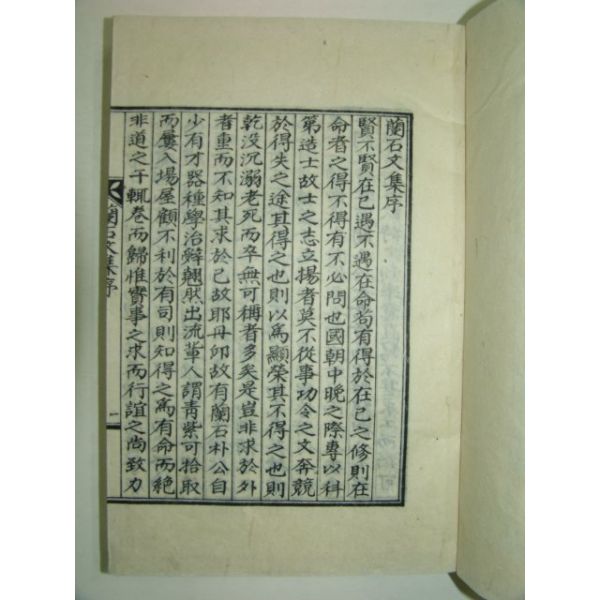 蘭石文集序
賢不賢在己遇不遇在命苟有得於在己之修則在
命者之得不得有不必問也國朝中晩之際專以科
第造士故士之志立揚者莫不從事功令之文奔競
於得失之途其得之也則以爲顯榮其不得之也則
乾没沉溺老死而卒無可稱者多矣是豈非求於外
者重而不知其求於己故耶丹邱故有蘭石朴公自
少有才器種學治辭翹然出流輩人謂靑紫可拾取
而屢入場屋顧不利於有司則知得之爲有命而絶
非道之干輒卷而歸惟實事之求而行誼之尚致力
蘭石文集序
一